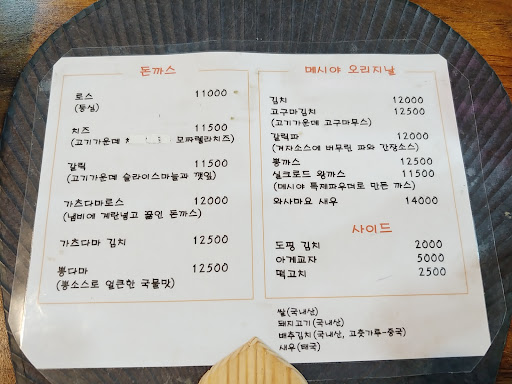 돈까스
로스 11000
(등심)
치즈 11500
(고기가운데 모짜렐라치즈)
갈릭 11500
(고기가운데 슬라이스마늘과 깻잎)
가츠다마로스 12000
(냄비에 계란넣고 끓인 돈까스)
가츠다마 김치 12500
뽕다마 12500
(뽕소스로 얼큰한 국물맛)
메시야 오리지날
김치 12000
고구마김치 12500
(고기가운데 고구마무스)
갈릭파 12000
(겨자소스에 버무린 파와 간장소스)
뽕까스 12500
실크로드 왕까스 11500
(메시야 특제파우더로 만든 까스)
와사마요 새우 14000
사이드
토핑 김치 2000
아게교자 5000
떡꼬치 2500
쌀(국내산)
돼지고기(국내산)
배추김치(국내산, 고춧가루-중국)
새우(태국)